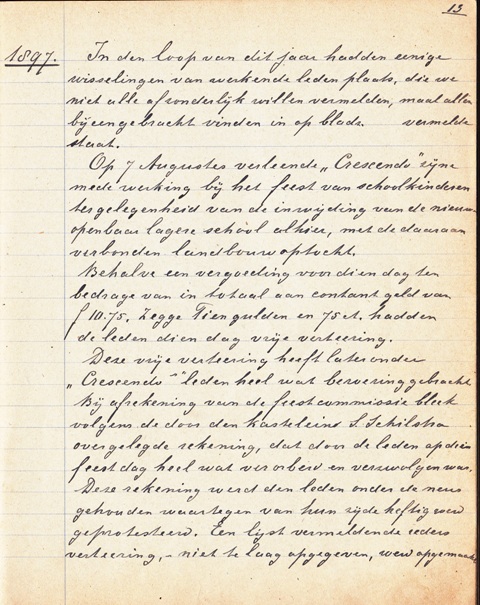 13
1897.
In den loop van dit jaar hadden eenige
wisselingen van werkende leden plaats, die we
niet alle afzonderlijk willen vermelden, maar allen
bijeengebracht vinden in op bladz. vermelde
staat.
Op 7 Augustus verleende „Crescendo" zijne
medewerking bij het feest van schoolkinderen
ter gelegenheid van de inwijding van de nieuwe
openbaar lagere school alhier, met de daaraan
verbonden landbouwoptocht.
Behalve een vergoeding voor dien dag ten
bedrage van in totaal aan contant geld van
f 10.75, zegge Tien gulden en 75 ct, hadden
de leden dien dag vrije verteering.
Deze vrije verteering heeft later onder
„Crescendo" leden heel wat beroering gebracht
Bij afrekening van de feestcommissie bleek
volgens de door den kastelein S. Schilstra
overgelegde rekening, dat door de leden op dien
feestdag heel wat verorberd en verzwolgen was.
Deze rekening werd den leden onder de neus
gehouden waartegen van hun zijde heftig werd
geprotesteerd. Een lijst vermeldende ieders
verteering, - niet te laag opgegeven, werd opgemaakt